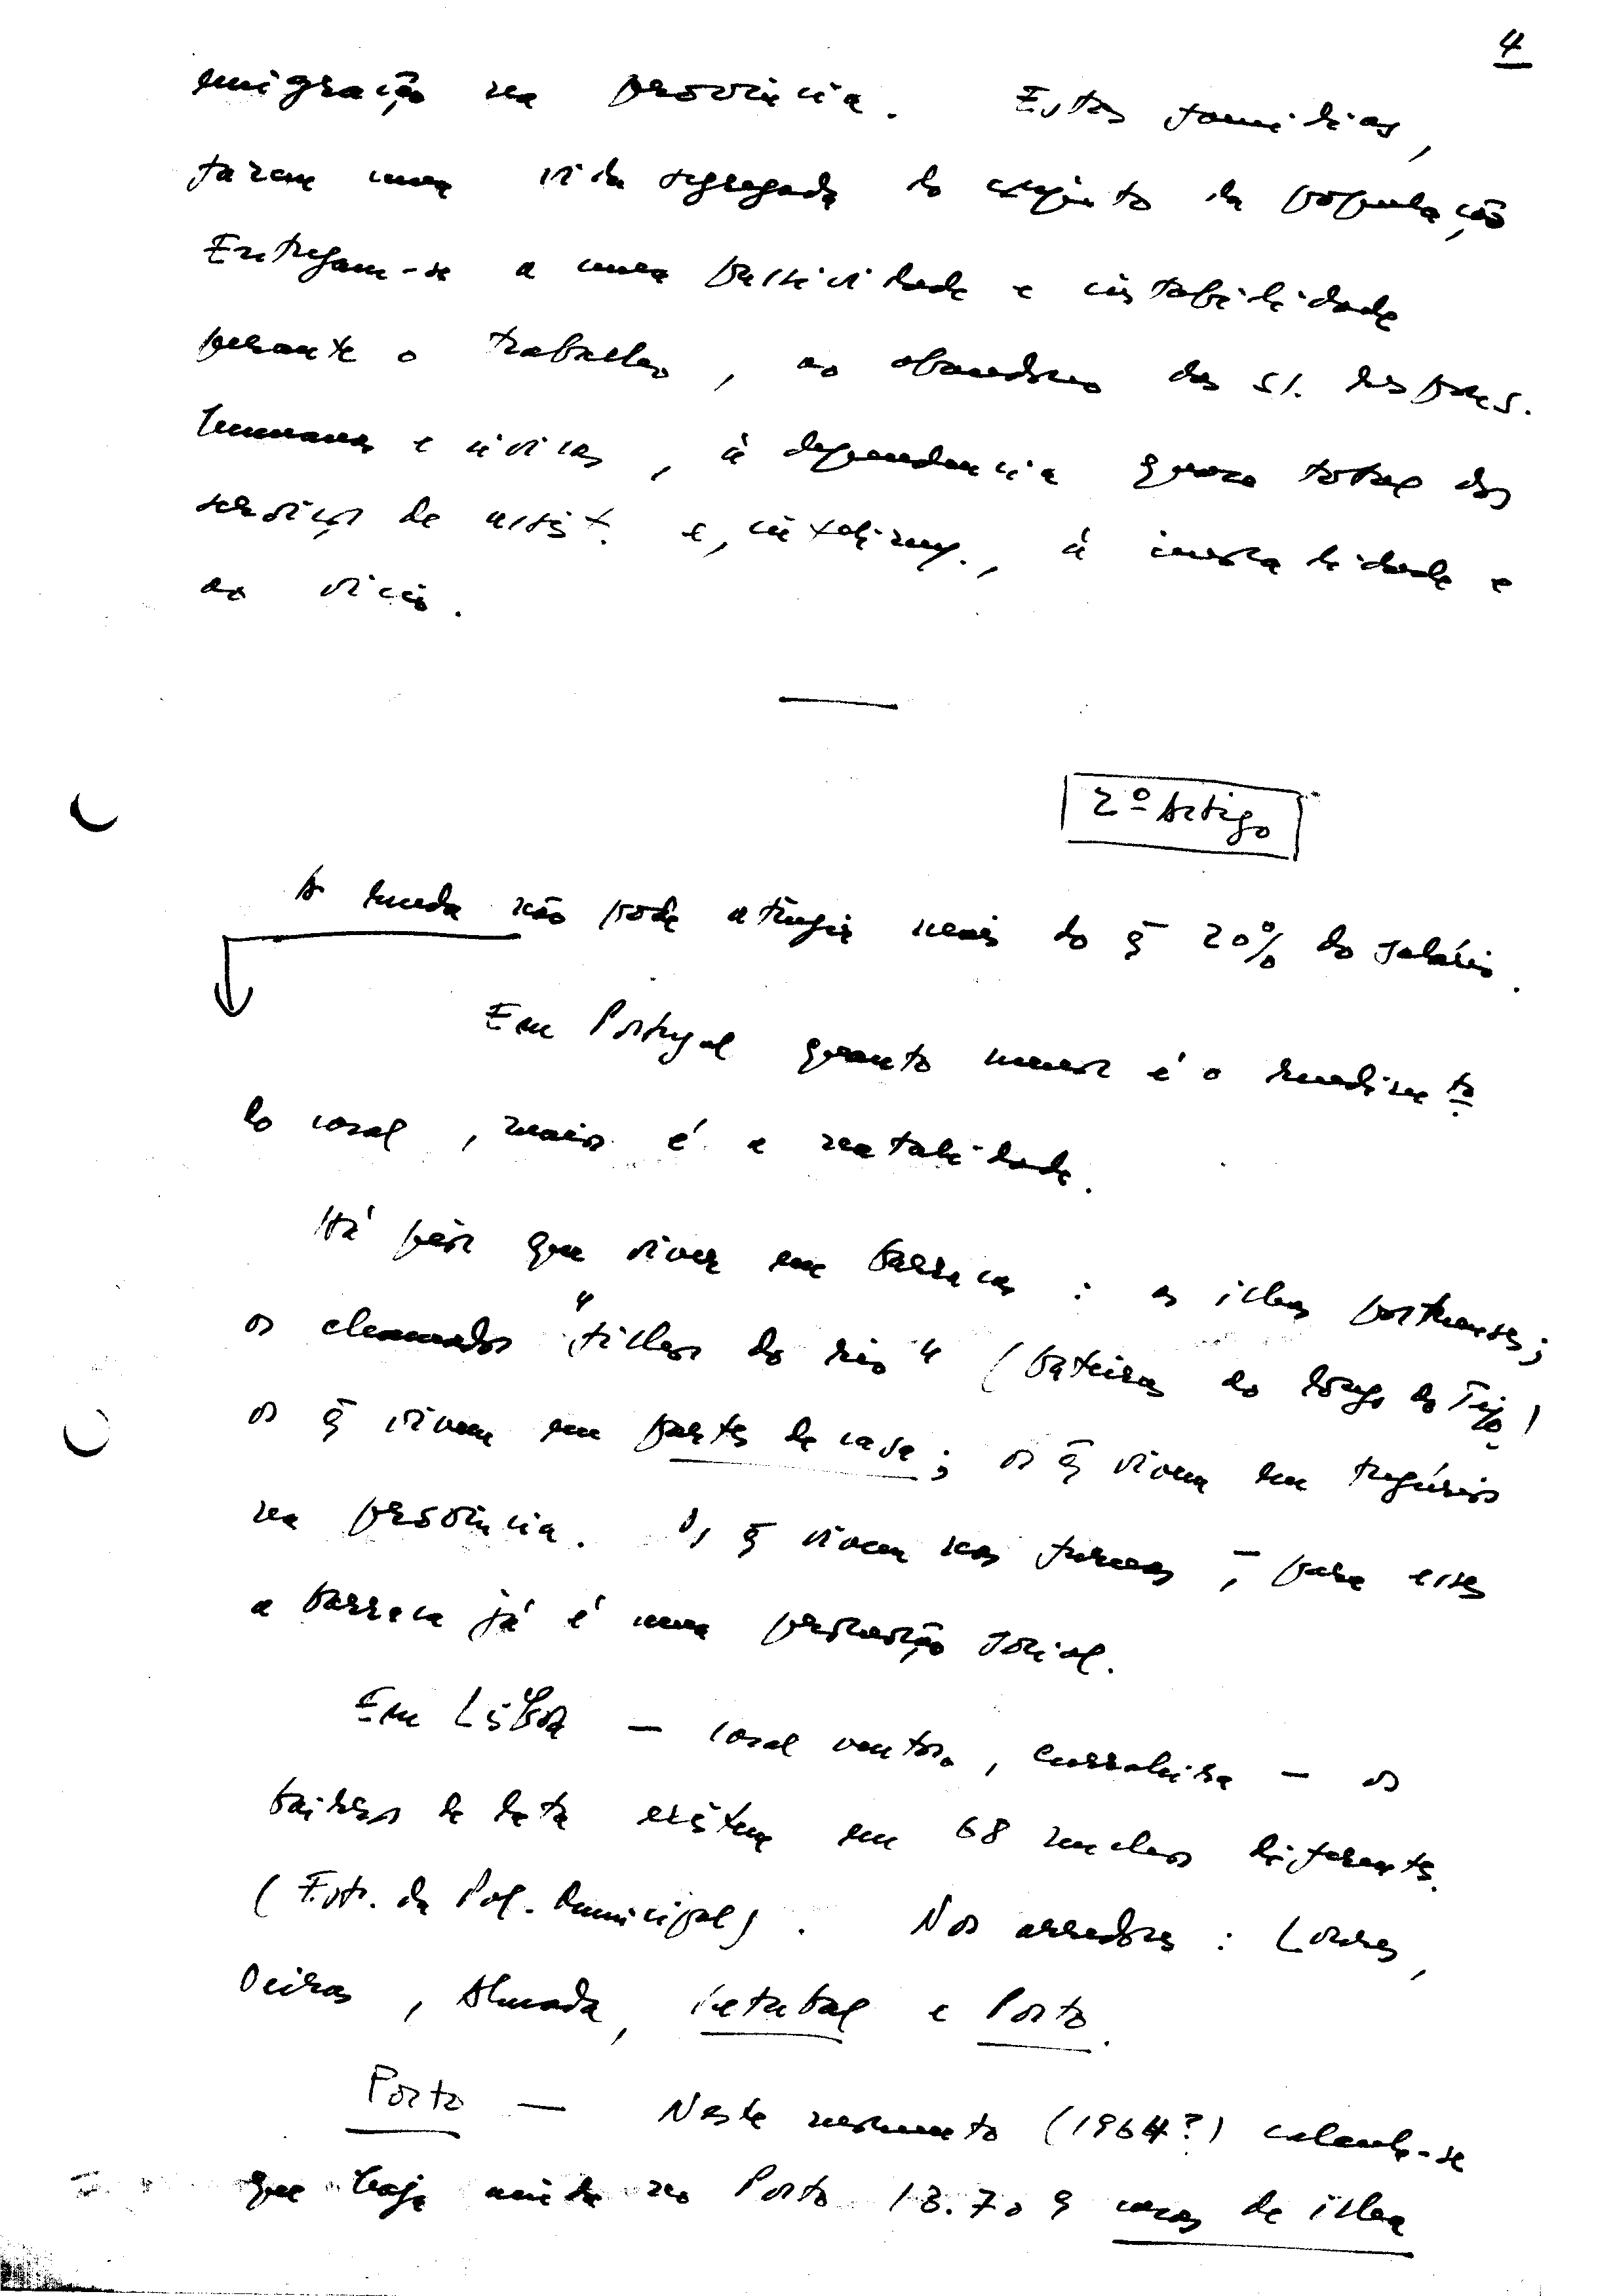 4
emigração na província. Estas famílias,
fazem uma vida segregada do conjunto da população
Entregam-se a uma passividade e instabilidade
perante o trabalho, ao abandono das s/. desposs.
humanas e cívicas, à dependencia quase total dos
serviços de assist. e, infelizmy., à imoralidade e
ao vício.
2º Artigo
A renda não pode atingir mais do q̄ 20% do salário.
Em Portugal quanto menor é o rendimto
do casal, maior é a natalidade.
Há pior que viver em barracas: as ilhas portuenses;
os chamados "filhos do rio" (bateiras ao longo do Tejo)
os q̄ vivem em partes de casa; os q̄ vivem em tugúrios
na província. Os q̄ vivem nas furnas —, para esses
a barraca já é uma promoção social.
Em Lisboa — casal ventoso, curraleira — os
bairros de lata existem em 68 nucleos diferentes.
(Est. da Pol. Municipal). Nos arredores: Loures,
Oeiras, Almada, Setubal e Porto.
Porto — Neste momento (1964?) calcula-se
que haja ainda no Porto 13.709 casas de ilha